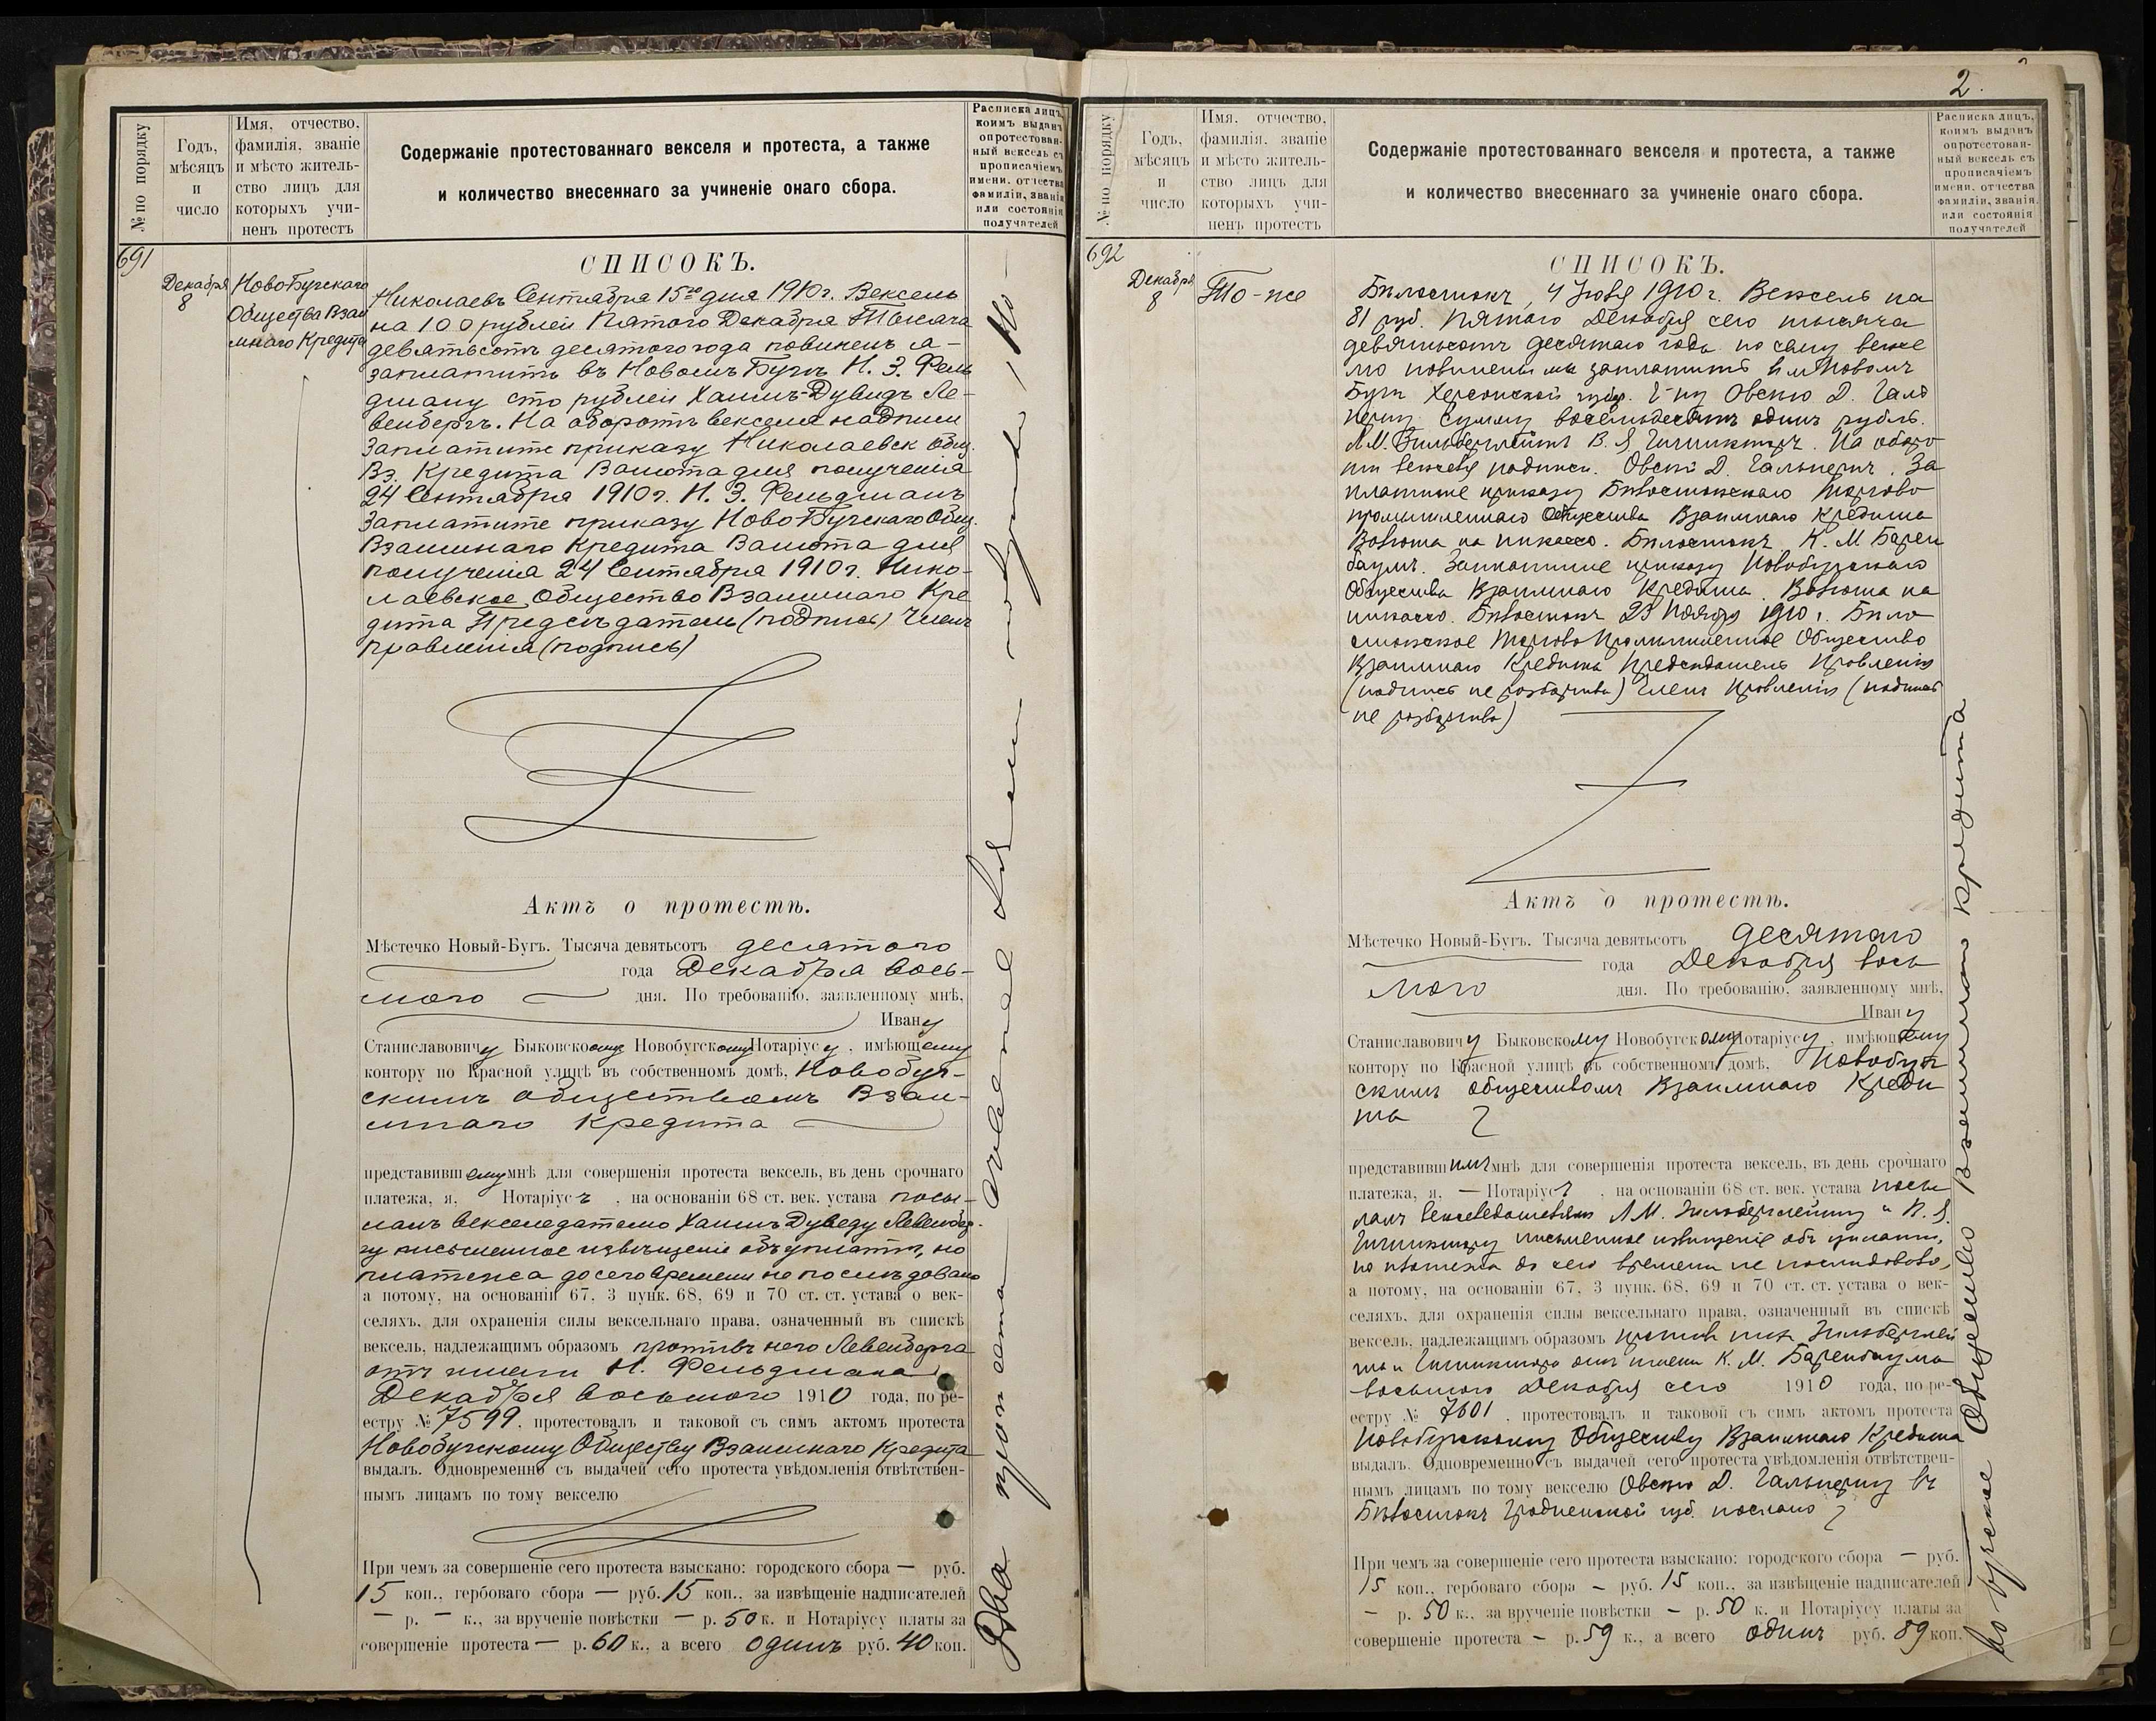 № по порядку
Годъ, мѣсяцъ и число
Имя, отчество, фамилія, званіе и мѣсто жительство лицъ для которыхъ учиненъ протестъ
Содержаніе протестованнаго векселя и протеста, а также
и количество внесеннаго за учиненіе онаго сбора.
Расписка лицъ, коимъ выданъ опротестованный вексель съ прописаніемъ имени, отчества фамиліи, званія или состоянія получателей
691
Декабря
8
НовоБугскаго
Общества Взаи
мнаго Кредита
СПИСОКЪ.
Николаевъ Сентября 15го дня 1910г. Вексель
на 100 рублей Пятого Декабря Тысяча
девятьсотъ десятого года повиненъ я-
заплатить въ Новомъ Бугѣ Н. З. Фель
дману сто рублей Хаимъ-Дувидъ Ле-
венбергъ. На оборотѣ векселя надписи
Заплатите приказу Николаевск Общ.
Вз. Кредита Валюта для полученія
24 Сентября 1910г. Н. З. Фельдманъ
Заплатите приказу НовоБугскаго Общ.
Взаимнаго Кредита Валюта для
полученія 24 Сентября 1910г. Нико-
лаевское Общество Взаимнаго Кре
дита Предсѣдатель (подпись) Членъ
правленія (подпись)
Актъ о протестѣ.
Мѣстечко Новый-Бугъ. Тысяча девятьсотъ десятого
года Декабря вось-
мого дня. По требованію, заявленному мнѣ,
Ивану
Станиславовичу Быковскому Новобугскому Нотаріусу, имѣющему
контору по Красной улицѣ въ собственномъ домѣ, Новобуг-
скимъ обществомъ Взаи-
мнаго Кредита
представившему мнѣ для совершенія протеста вексель, въ день срочнаго
платежа, я, Нотаріусъ, на основаніи 68 ст. век. устава посы-
лалъ векселедателю Хаимъ Дувиду Левенбер-
гу письменное извѣщеніе объ уплатѣ, но
платежа до сего времени не послѣдовало
а потому, на основаніи 67, 3 пунк. 68, 69 и 70 ст. ст. устава о век-
селяхъ, для охраненія силы вексельнаго права, означенный въ спискѣ
вексель, надлежащимъ образомъ противъ него Левенберга
отъ имени Н. Фельдмана
Декабря восьмого 1910 года, по ре-
естру № 7599, протестовалъ и таковой съ симъ актомъ протеста
Новобугскому Обществу Взаимнаго Кредита
выдалъ. Одновременно съ выдачей сего протеста увѣдомленія отвѣтствен-
нымъ лицамъ по тому векселю
При чемъ за совершеніе сего протеста взыскано: городского сбора — руб.
15 коп., гербоваго сбора — руб. 15 коп., за извѣщеніе надписателей
— р. — к., за врученіе повѣстки — р. 50 к. и Нотаріусу платы за
совершеніе протеста — р. 60 к., а всего одинъ руб. 40 коп.
Два протеста
2.
№ по порядку
Годъ, мѣсяцъ и число
Имя, отчество, фамилія, званіе и мѣсто жительство лицъ для которыхъ учиненъ протестъ
Содержаніе протестованнаго векселя и протеста, а также
и количество внесеннаго за учиненіе онаго сбора.
Расписка лицъ, коимъ выданъ опротестованный вексель съ прописаніемъ имени, отчества фамиліи, званія или состоянія получателей
692
Декабря
8
То-же
СПИСОКЪ.
Бѣлостокъ, 4 1910г. Вексель на
81 руб. Пятого Декабря сего тысяча
девятьсотъ десятаго года по сему вексе
лю повинны мы заплатить въ м Новомъ
Бугѣ Херсонской губ. Г-ну Овсею Д. Галь
перну сумму восемьдесятъ одинъ рубль.
На оборо
тѣ векселя надписи. Овсей Д. Гальпернъ. За
платите приказу Бѣлостокскаго Торгово
промышленнаго Общества Взаимнаго Кредита
Валюта на инкассо. Бѣлостокъ К. М Барен
баумъ. Заплатите приказу Новобугскаго
Общества Взаимнаго Кредита. Валюта на
инкассо. Бѣлостокъ 23 Ноября 1910г. Бѣло
стокское Торгово Промышленное Общество
Взаимнаго Кредита Предсѣдатель Правленія
(подпись не разборчива) Членъ Правленія (подпись
не разборчива)
Актъ о протестѣ.
Мѣстечко Новый-Бугъ. Тысяча девятьсотъ десятаго
года Декабря вось
мого дня. По требованію, заявленному мнѣ,
Ивану
Станиславовичу Быковскому Новобугскому Нотаріусу, имѣющему
контору по Красной улицѣ въ собственномъ домѣ, Новобуг
скимъ обществомъ Взаимнаго Креди
та
представившимъ мнѣ для совершенія протеста вексель, въ день срочнаго
платежа, я, — Нотаріусъ, на основаніи 68 ст. век. устава посы
лалъ векселедателямъ
письменное извѣщеніе объ уплатѣ,
но платежа до сего времени не послѣдовало,
а потому, на основаніи 67, 3 пунк. 68, 69 и 70 ст. ст. устава о век-
селяхъ, для охраненія силы вексельнаго права, означенный въ спискѣ
вексель, надлежащимъ образомъ противъ нихъ
отъ имени К. М. Баренбаума
восьмого Декабря сего 1910 года, по ре-
естру № 7601, протестовалъ и таковой съ симъ актомъ протеста
Новобугскому Обществу Взаимнаго Кредита
выдалъ. Одновременно съ выдачей сего протеста увѣдомленія отвѣтствен-
нымъ лицамъ по тому векселю Овсею Д. Гальперну въ
Бѣлостокъ Гродненской губ. послано
При чемъ за совершеніе сего протеста взыскано: городского сбора — руб.
15 коп., гербоваго сбора — руб. 15 коп., за извѣщеніе надписателей
— р. 50 к., за врученіе повѣстки — р. 50 к. и Нотаріусу платы за
совершеніе протеста — р. 59 к., а всего одинъ руб. 89 коп.
Общество Взаимнаго Кредита